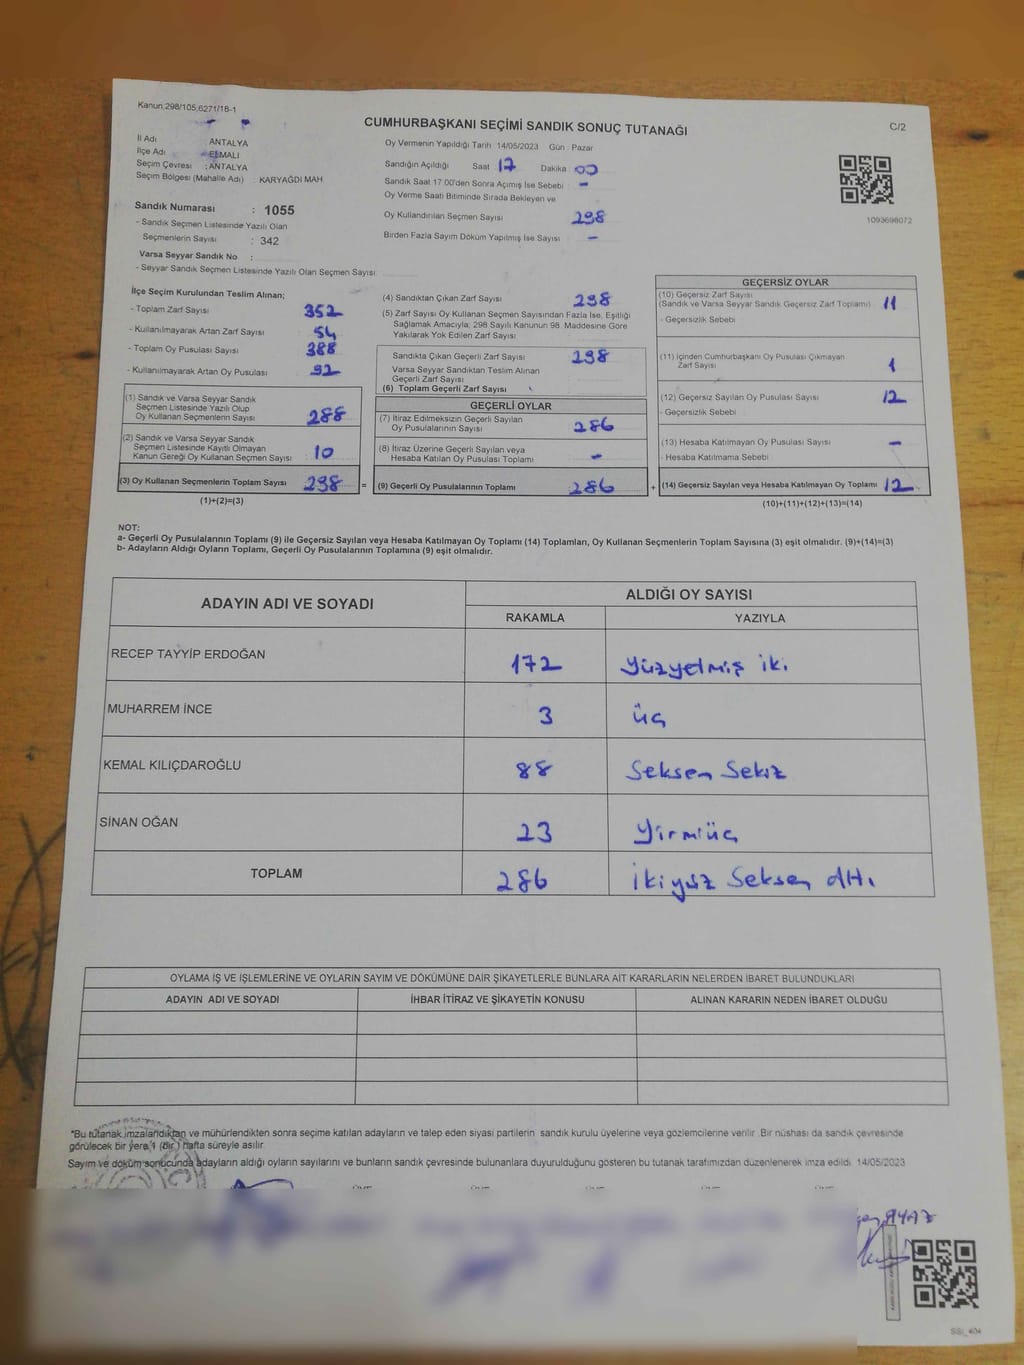 Kanun,298/105,6271/18-1
CUMHURBAŞKANI SEÇİMİ SANDIK SONUÇ TUTANAĞI
C/2
İl Adı : ANTALYA
İlçe Adı : ELMALI
Seçim Çevresi : ANTALYA
Seçim Bölgesi (Mahalle Adı) : KARYAĞDI MAH
Sandık Numarası : 1055
- Sandık Seçmen Listesinde Yazılı Olan
Seçmenlerin Sayısı : 342
Varsa Seyyar Sandık No :
- Seyyar Sandık Seçmen Listesinde Yazılı Olan Seçmen Sayısı:
Oy Vermenin Yapıldığı Tarih 14/05/2023 Gün : Pazar
Sandığın Açıldığı Saat 17 Dakika : 00
Sandık Saat 17:00'den Sonra Açımış İse Sebebi : -
Oy Verme Saati Bitiminde Sırada Bekleyen ve
Oy Kullandırılan Seçmen Sayısı 298
Birden Fazla Sayım Döküm Yapılmış İse Sayısı -
1093698072
İlçe Seçim Kurulundan Teslim Alınan;
- Toplam Zarf Sayısı 352
- Kullanılmayarak Artan Zarf Sayısı 54
- Toplam Oy Pusulası Sayısı 388
- Kullanılmayarak Artan Oy Pusulası 92
(1) Sandık ve Varsa Seyyar Sandık
Seçmen Listesinde Yazılı Olup
Oy Kullanan Seçmenlerin Sayısı 288
(2) Sandık ve Varsa Seyyar Sandık
Seçmen Listesinde Kayıtlı Olmayan
Kanun Gereği Oy Kullanan Seçmen Sayısı 10
(3) Oy Kullanan Seçmenlerin Toplam Sayısı 298 =
(1)+(2)=(3)
(4) Sandıktan Çıkan Zarf Sayısı 298
(5) Zarf Sayısı Oy Kullanan Seçmen Sayısından Fazla İse, Eşitliği
Sağlamak Amacıyla; 298 Sayılı Kanunun 98. Maddesine Göre
Yakılarak Yok Edilen Zarf Sayısı
Sandıkta Çıkan Geçerli Zarf Sayısı 298
Varsa Seyyar Sandıktan Teslim Alınan
Geçerli Zarf Sayısı
(6) Toplam Geçerli Zarf Sayısı
GEÇERLİ OYLAR
(7) İtiraz Edilmeksizin Geçerli Sayılan
Oy Pusulalarının Sayısı 286
(8) İtiraz Üzerine Geçerli Sayılan veya
Hesaba Katılan Oy Pusulası Toplamı -
(9) Geçerli Oy Pusulalarının Toplamı 286 +
GEÇERSİZ OYLAR
(10) Geçersiz Zarf Sayısı
(Sandık ve Varsa Seyyar Sandık Geçersiz Zarf Toplamı) 11
- Geçersizlik Sebebi
(11) İçinden Cumhurbaşkanı Oy Pusulası Çıkmayan
Zarf Sayısı 1
(12) Geçersiz Sayılan Oy Pusulası Sayısı 12
- Geçersizlik Sebebi
(13) Hesaba Katılmayan Oy Pusulası Sayısı -
- Hesaba Katılmama Sebebi
(14) Geçersiz Sayılan veya Hesaba Katılmayan Oy Toplamı 12
(10)+(11)+(12)+(13)=(14)
NOT:
a- Geçerli Oy Pusulalarının Toplamı (9) ile Geçersiz Sayılan veya Hesaba Katılmayan Oy Toplamı (14) Toplamları, Oy Kullanan Seçmenlerin Toplam Sayısına (3) eşit olmalıdır. (9)+(14)=(3)
b- Adayların Aldığı Oyların Toplamı, Geçerli Oy Pusulalarının Toplamına (9) eşit olmalıdır.
ADAYIN ADI VE SOYADI
ALDIĞI OY SAYISI
RAKAMLA YAZIYLA
RECEP TAYYİP ERDOĞAN 172 yüzyetmiş iki
MUHARREM İNCE 3 üç
KEMAL KILIÇDAROĞLU 88 Seksen Sekiz
SİNAN OĞAN 23 Yirmiüç
TOPLAM 286 İkiyüz Seksen altı
OYLAMA İŞ VE İŞLEMLERİNE VE OYLARIN SAYIM VE DÖKÜMÜNE DAİR ŞİKAYETLERLE BUNLARA AİT KARARLARIN NELERDEN İBARET BULUNDUKLARI
ADAYIN ADI VE SOYADI İHBAR İTİRAZ VE ŞİKAYETİN KONUSU ALINAN KARARIN NEDEN İBARET OLDUĞU
*Bu tutanak,imzalandıktan ve mühürlendikten sonra seçime katılan adayların ve talep eden siyasi partilerin sandık kurulu üyelerine veya gözlemcilerine verilir .Bir nüshası da sandık çevresinde
görülecek bir yere 1 (bir ) hafta süreyle asılır.
Sayım ve döküm sonucunda adayların aldığı oyların sayılarını ve bunların sandık çevresinde bulunanlara duyurulduğunu gösteren bu tutanak tarafımızdan düzenlenerek imza edildi. 14/05/2023
AYAZ